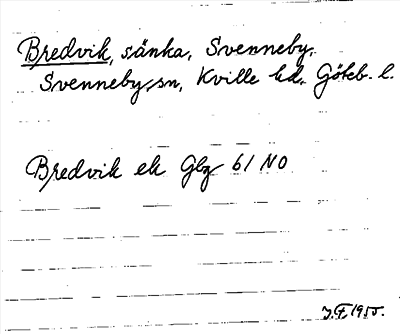 Bredvik, sänka, Svenneby,
Svenneby sn, Kville hd. Göteb. l.
Bredvik ek Gbg 61 NO
J.F. 1955.